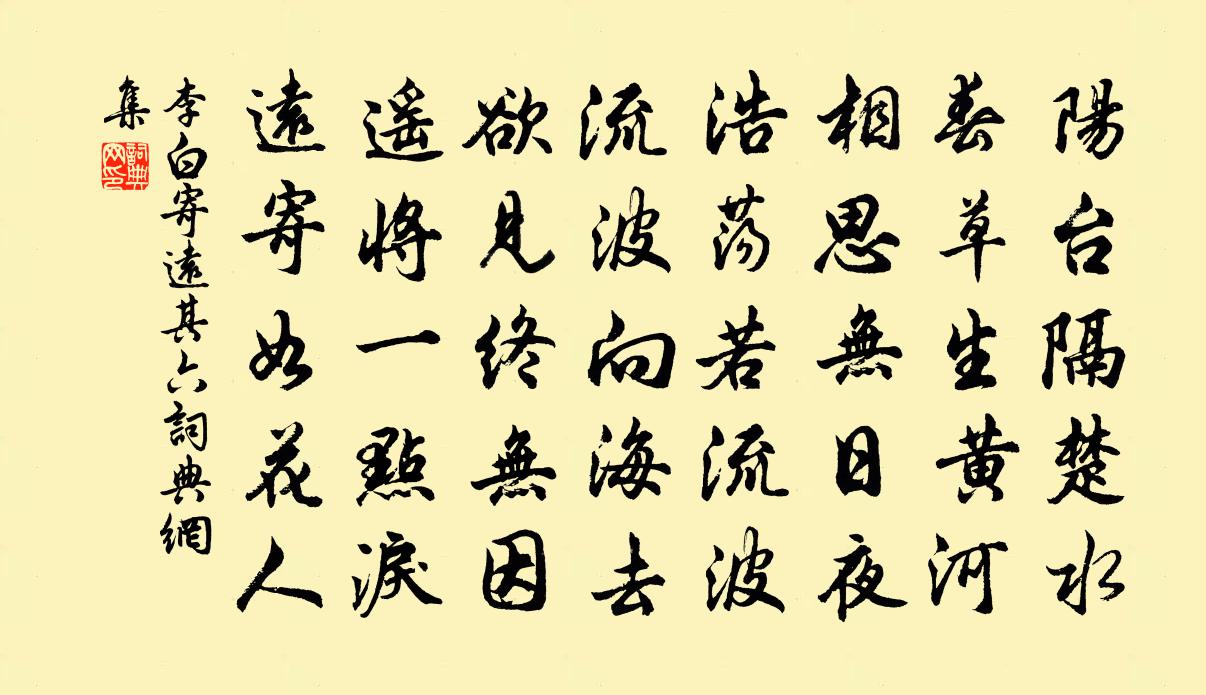 陽台隔楚水
春草生黄河
相思無日夜
浩蕩若流波
流波向海去
欲見終無因
遥將一點淚
遠寄如花人
李白寄遠其六詞典網
集
詞典網印